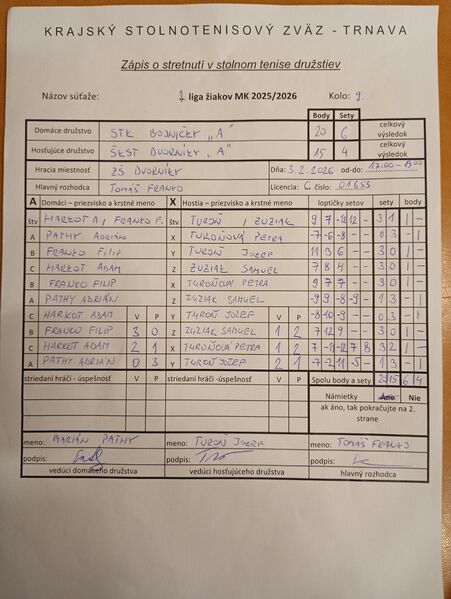 KRAJSKÝ STOLNOTENISOVÝ ZVÄZ - TRNAVA
Zápis o stretnutí v stolnom tenise družstiev
Názov súťaže: 1 liga žiakov MK 2025/2026 Kolo: 9.
Body Sety
Domáce družstvo STK BOJNIČKY "A" 20 6 celkový výsledok
Hosťujúce družstvo ŠKST DVORNÍKY "A" 15 4 celkový výsledok
Hracia miestnosť ZŠ DVORNÍKY Dňa: 3.2.2026 od-do: 17:00 - 19:00
Hlavný rozhodca TOMÁŠ FRANKO Licencia: C číslo:
A Domáci - priezvisko a krstné meno X Hostia - priezvisko a krstné meno loptičky setov sety body
štv HARKOT A, FRANKO F. štv TUROŇ / ZUZIAK 9 7 -12 12 - 3 1 1 -
A PATHY ADRIÁN X TUROŇOVÁ PETRA -7 -6 -8 - - 0 3 - 1
B FRANKO FILIP Y TUROŇ JOZEF 11 3 6 - - 3 0 1 -
C HARKOT ADAM Z ZUZIAK SAMUEL 7 8 4 - - 3 0 1 -
B FRANKO FILIP X TUROŇOVÁ PETRA 9 7 7 - - 3 0 1 -
A PATHY ADRIÁN Z ZUZIAK SAMUEL -9 9 -8 -9 - 1 3 - 1
C HARKOT ADAM V P Y TUROŇ JOZEF V P -8 -10 -9 - - 0 3 - 1
B FRANKO FILIP 3 0 Z ZUZIAK SAMUEL 1 2 7 12 9 - - 3 0 1 -
C HARKOT ADAM 2 1 X TUROŇOVÁ PETRA 1 2 7 -11 -12 7 8 3 2 1 -
A PATHY ADRIÁN 0 3 Y TUROŇ JOZEF 2 1 -7 -2 11 -5 - 1 3 - 1
striedaní hráči - úspešnosť V P striedaní hráči - úspešnosť V P Spolu body a sety 20 15 6 4
Námietky Áno Nie
ak áno, tak pokračujte na 2. strane
meno: MARIÁN PATHY meno: TUROŇ JOZEF meno: TOMÁŠ FRANKO
podpis: podpis: podpis:
vedúci domáceho družstva vedúci hosťujúceho družstva hlavný rozhodca